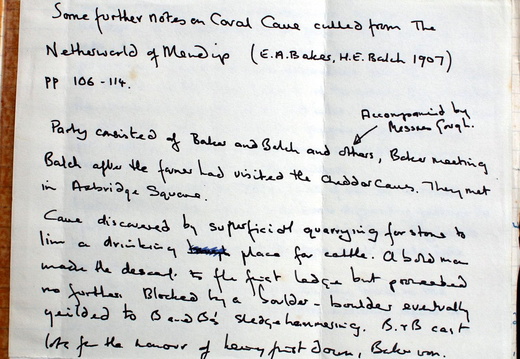 Some further notes on Coral Cave culled from The
Netherworld of Mendip (E.A. Baker, H.E. Balch 1907)
pp 106-114.
Accompanied by
Messrs Gough.
Party consisted of Baker and Balch and others, Baker meeting
Balch after the former had visited the Cheddar Caves. They met
in Axbridge Square.
Cave discovered by superficial quarrying for stone to
line a drinking place for cattle. A bold man
made the descent to the first ledge but proceeded
no further. Blocked by a boulder - boulder eventually
yeilded to B and B's sledgehammering. B & B cast
lots for the honour of being first down, Baker won.